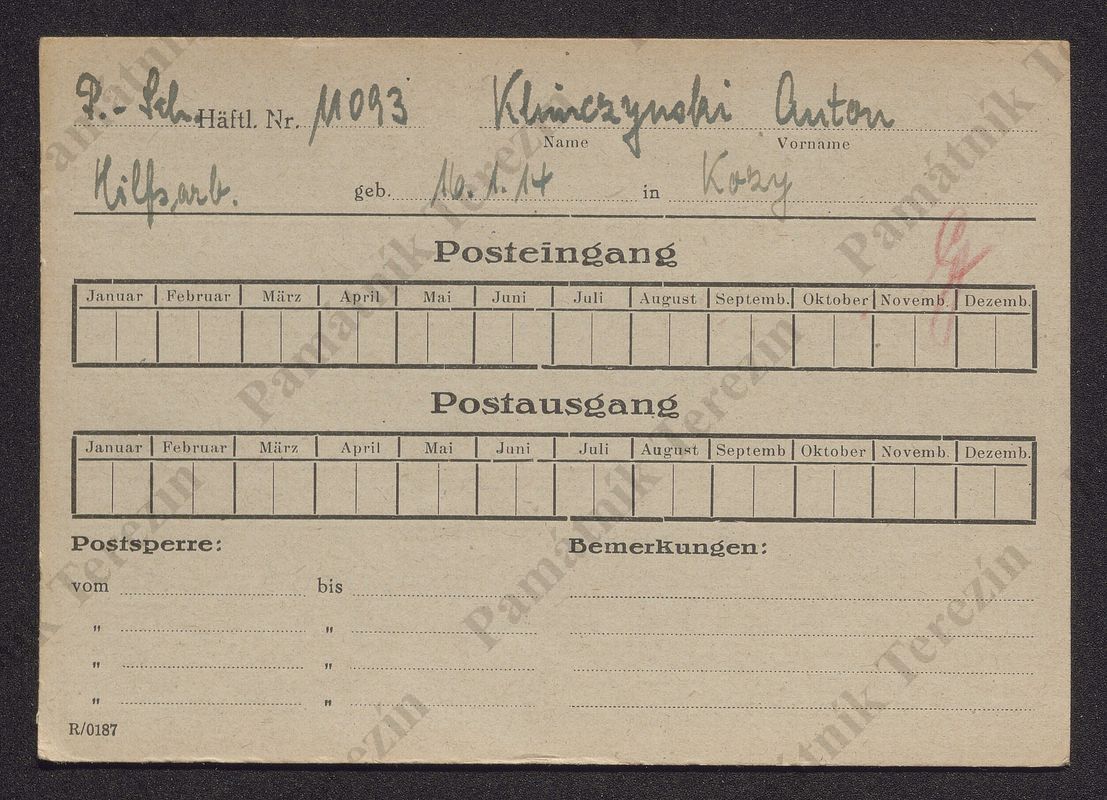 P.-Sch. Häftl. Nr. 11093 Klimczynski Anton
Name Vorname
Hilfsarb. geb. 16.1.14 in Kozy
Posteingang
Januar Februar März April Mai Juni Juli August Septemb. Oktober Novemb. Dezemb.
Postausgang
Januar Februar März April Mai Juni Juli August Septemb Oktober Novemb. Dezemb.
Postsperre: Bemerkungen:
vom bis
" "
" "
" "
R/0187
Památník Terezín